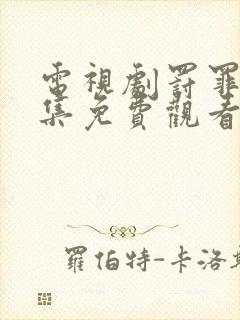 電視劇罰罪
集免費觀看
羅伯特-卡洛斯